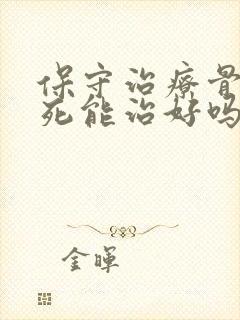 保守治療骨
死能治好嗎
金暉